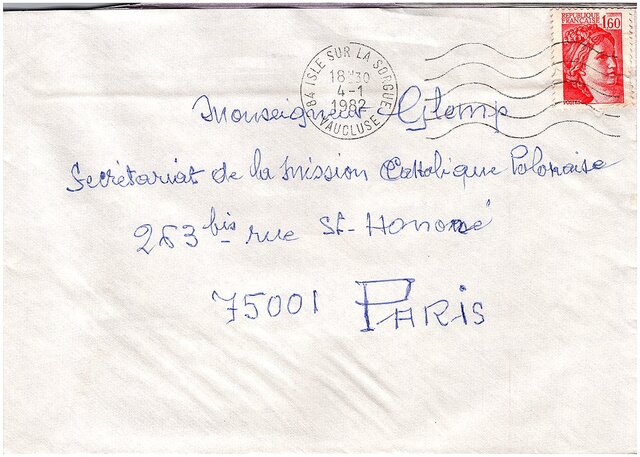 REPUBLIQUE FRANÇAISE 1,60
POSTES
84 ISLE SUR LA SORGUE
18H30
4-1
1982
VAUCLUSE
Monseigneur Glemp
Secrétariat de la Mission Catholique Polonaise
263 bis rue St-Honoré
75001 PARIS